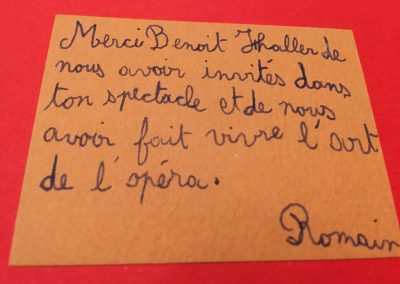 Merci Benoit Hhaller de
nous avoir invités dans
ton spectacle et de nous
avoir fait vivre l'art
de l'opéra.
Romain